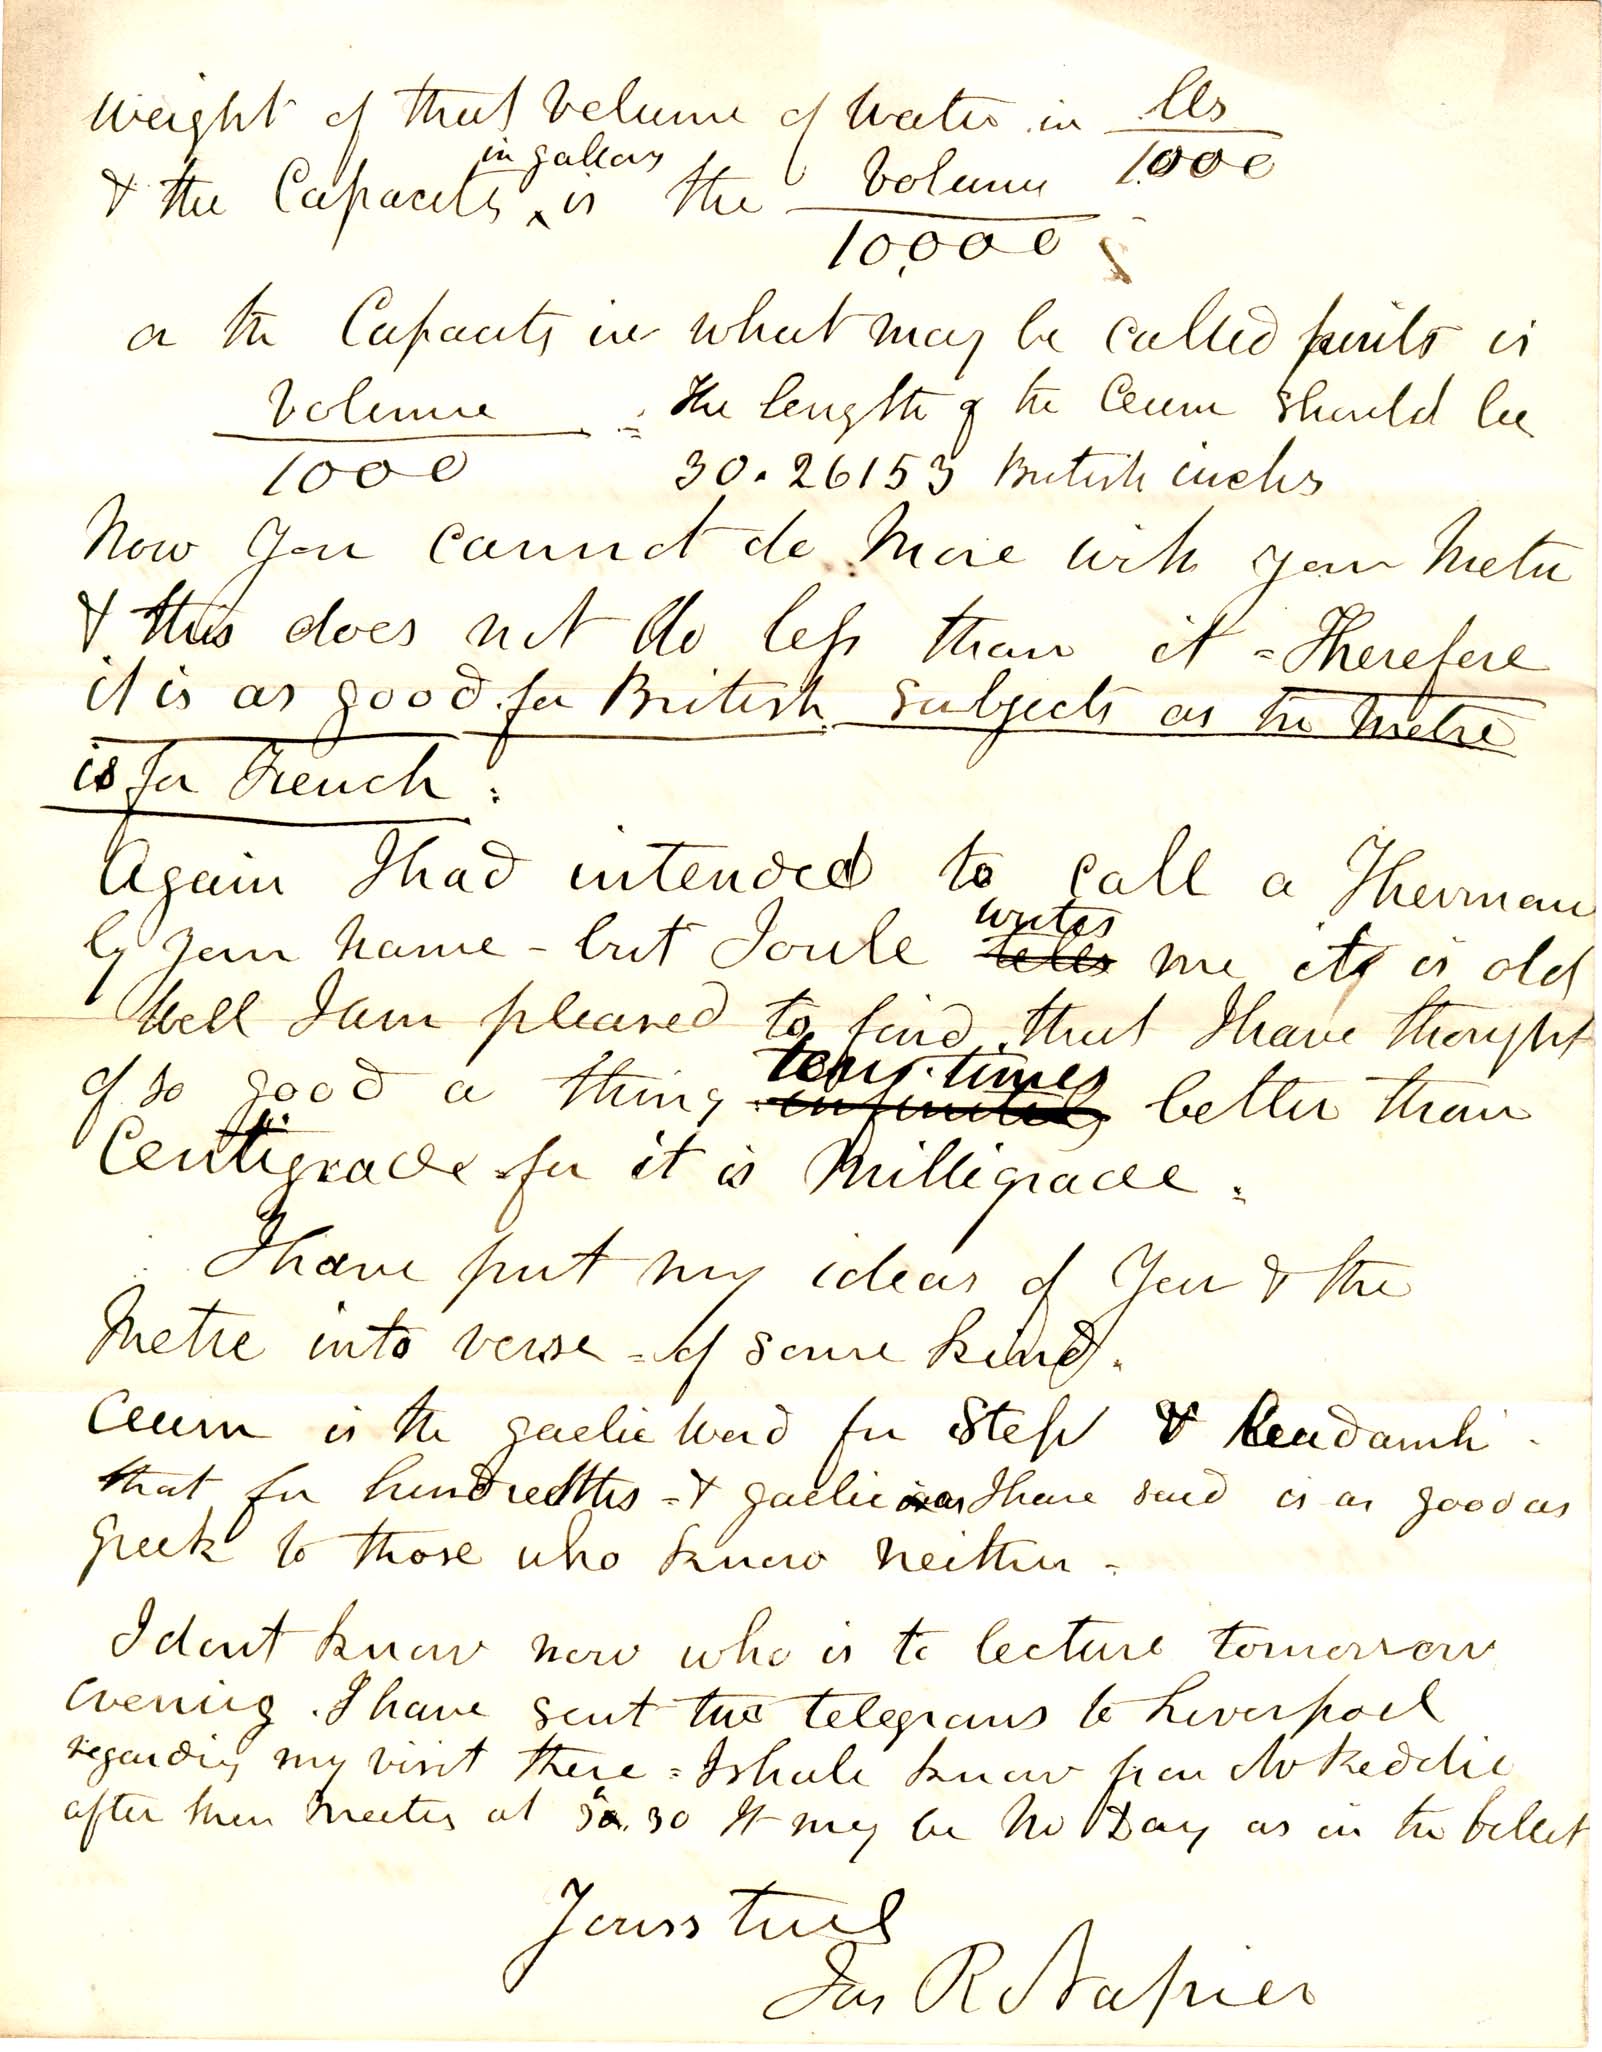 weight of that volume of water in lbs
1000
in gallons
& the Capacity is the Volume
10,000
or the Capacity in what may be called pints is
Volume = The length of the Ceum should be
1000 30.26153 British inches
Now you cannot do more with your Metre
& this does not do less than it = Therefore
it is as good for British subjects as the Metre
is for French =
Again I had intended to call a Thermom
writes
by your name - but Joule tells me it is old
Well I am pleased to find that I have thought
ten times
of so good a thing infinitely better than
Centigrade for it is Milligrade =
I have put my ideas of you & the
Metre into verse = of some kind.
Ceum is the gaelic word for Step &
that for hundredths = & gaelic as I have said is as good as
Greek to those who know neither =
I dont know now who is to lecture tomorrow
evening. I have sent two telegrams to Liverpool
regarding my visit there = I shall know from Mr Keddie
after then meeting at 30 It may be Mr Day as in the billet
Yours truly
Jas R Napier